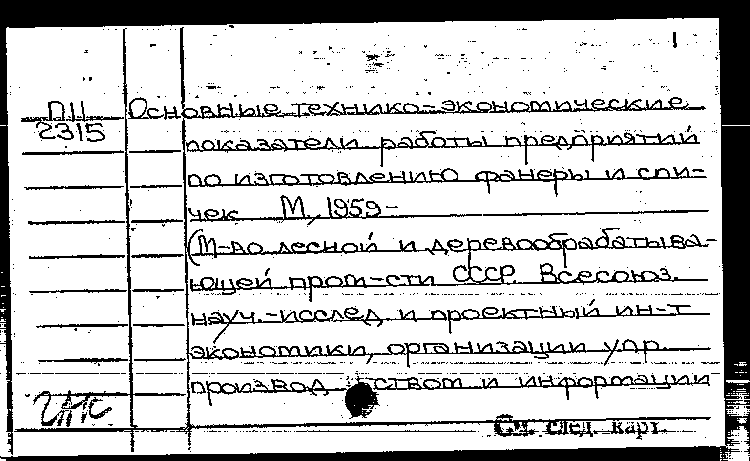 1
П11
2315
Основные технико-экономические
показатели работы предприятий
по изготовлению фанеры и спи-
чек М., 1959-
(М-во лесной и деревообрабатыва-
ющей пром-сти СССР. Всесоюз.
науч.-исслед. и проектный ин-т
экономики, организации упр.
производ ством и информации
См. след. карт.